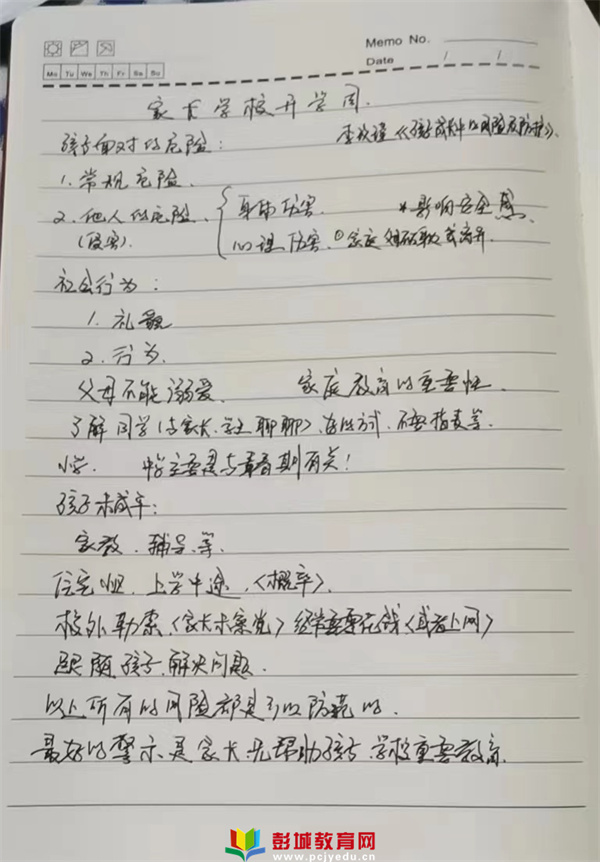 Memo No.
Mo Tu We Th Fr Sa Su
Date / /
家长学校开学周.
孩子面对的危险: 《孩子成长中的风险及防护》.
1. 常规危险.
2. 他人的危险. 身体伤害. *影响安全感.
(侵害). 心理伤害. ①家庭 或离开.
社会行为:
1. 礼貌
2. 行为.
父母不能溺爱. 家庭教育的重要性.
了解同学(与家长、 聊聊)、 方式、不要指责等.
小学. 中学主要是与青春期有关!
孩子未成年:
家教、辅导、等.
住宅 . 上学中途、<概率>.
校外勒索<家长未察觉>经常要零花钱<或者上网>
跟随孩子、解决问题.
以上所有的风险都是可以防范的.
最好的警示是家长先帮助孩子、学校重要教育.
彭城教育网
www.pcjyedu.cn